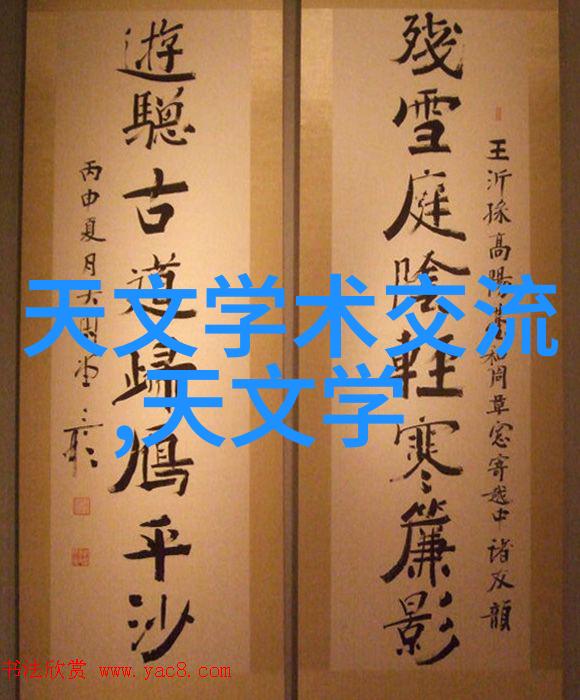 王沂孫高陽臺和周草窓寄越中諸友韻
殘雪庭陰輕寒簾影
遊驄古道歸鴈平沙
丙申夏月
天文学术交流
,天文学
书法欣赏 www.yac8.com